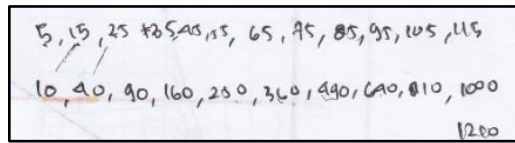 5, 15, 25 +35, 45, 55, 65, 75, 85, 95, 105, 115
10, 40, 90, 160, 250, 360, 490, 640, 810, 1000
1210